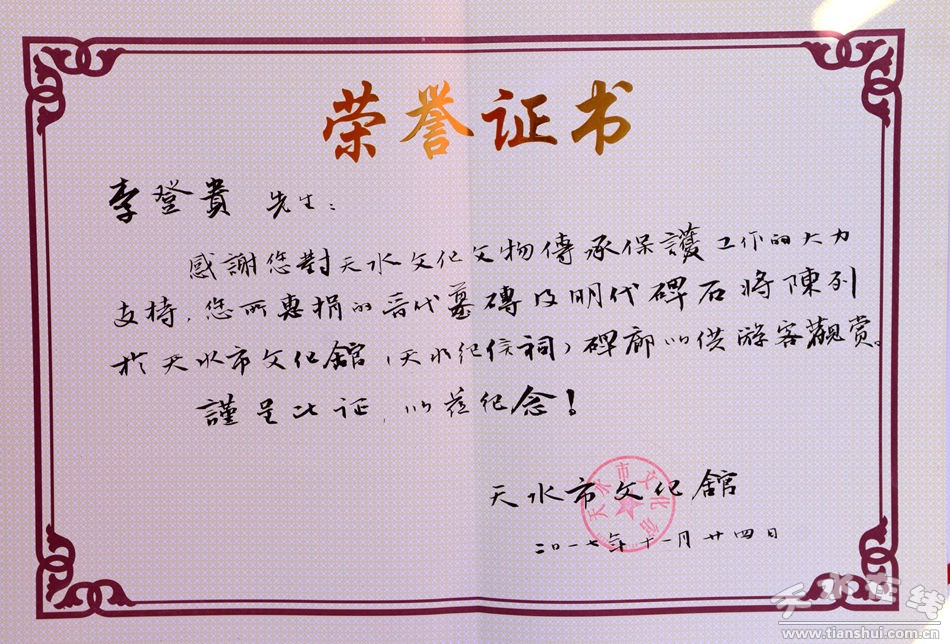 荣誉证书
李登貴 先生：
感謝您對天水文化文物傳承保護工作的大力
支持，您所惠捐的晋代墓磚及明代碑石將陳列
於天水市文化舘（天水纪信祠）碑廊以供游客觀赏。
謹呈此证，以茲纪念！
天水市文化舘
天水市文化馆
二〇一七年十一月廿四日
天水在线
www.tianshui.com.cn